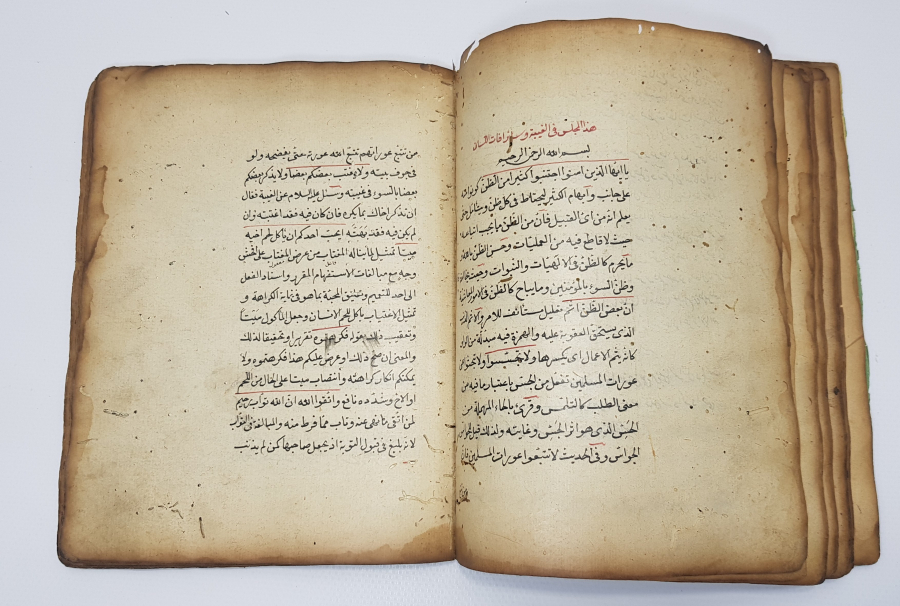 هذا المجلس فى الغيبة وسائر افات اللسان
بسم الله الرحمن الرحيم
يا ايها الذين امنوا اجتنبوا كثيرا من الظن كونوا منه
على جانب وابهام الكثير ليحتاط فى كل ظن ويتأمل حتى
يعلم انه من اى القبيل فان من الظن ما يجب اتباعه
حيث لا قاطع فيه من العمليات وحسن الظن بالله
ما يحرم كالظن فى الالهيات والنبوات وحيث يخالفه
وظن السوء بالمؤمنين وما يباح كالظن فى الامور المعاشية
ان بعض الظن اثم تعليل مستأنف للامر والاثم الذنب
الذى يستحق العقوبة عليه والهمزة فيه مبدلة من الواو
كانه يثم الاعمال اى يكسرها ولا تجسسوا ولا تبحثوا عن
عورات المسلمين تفعل من الجس باعتبار ما فيه من
معنى الطلب كالتلمس وقرئ بالحاء المهملة من
الحس الذى هو اثر الجس وغايته ولذلك قيل للحواس
الجواس وفى الحديث لا تتبعوا عورات المسلمين فان
من تتبع عوراتهم تتبع الله عورته حتى يفضحه ولو
فى جوف بيته ولا يغتب بعضكم بعضا ولا يذكر بعضكم
بعضا بالسوء فى غيبته وسئل عليه السلام عن الغيبة فقال
ان تذكر اخاك بما يكره فان كان فيه فقد اغتبته وان
لم يكن فيه فقد بهته ايحب احدكم ان يأكل لحم اخيه
ميتا تمثيل لما يناله المغتاب من عرض المغتاب على افحش
وجه مع مبالغات الاستفهام المقرر واسناد الفعل
الى احد للتعميم وتعليق المحبة بما هو فى غاية الكراهة و
تمثيل الاغتياب باكل لحم الانسان وجعل المأكول ميتا
وتعقيب ذلك بقوله فكرهتموه تقريرا وتحقيقا لذلك
والمعنى ان صح ذلك او عرض عليكم هذا فكرهتموه ولا
يمكنكم انكار كراهته وانتصاب ميتا على الحال من اللحم
او الاخ وشدده نافع واتقوا الله ان الله تواب رحيم
لمن اتقى ما نهى عنه وتاب مما فرط منه والمبالغة فى التواب
لانه بليغ فى قبول التوبة اذ يجعل صاحبها كمن لم يذنب